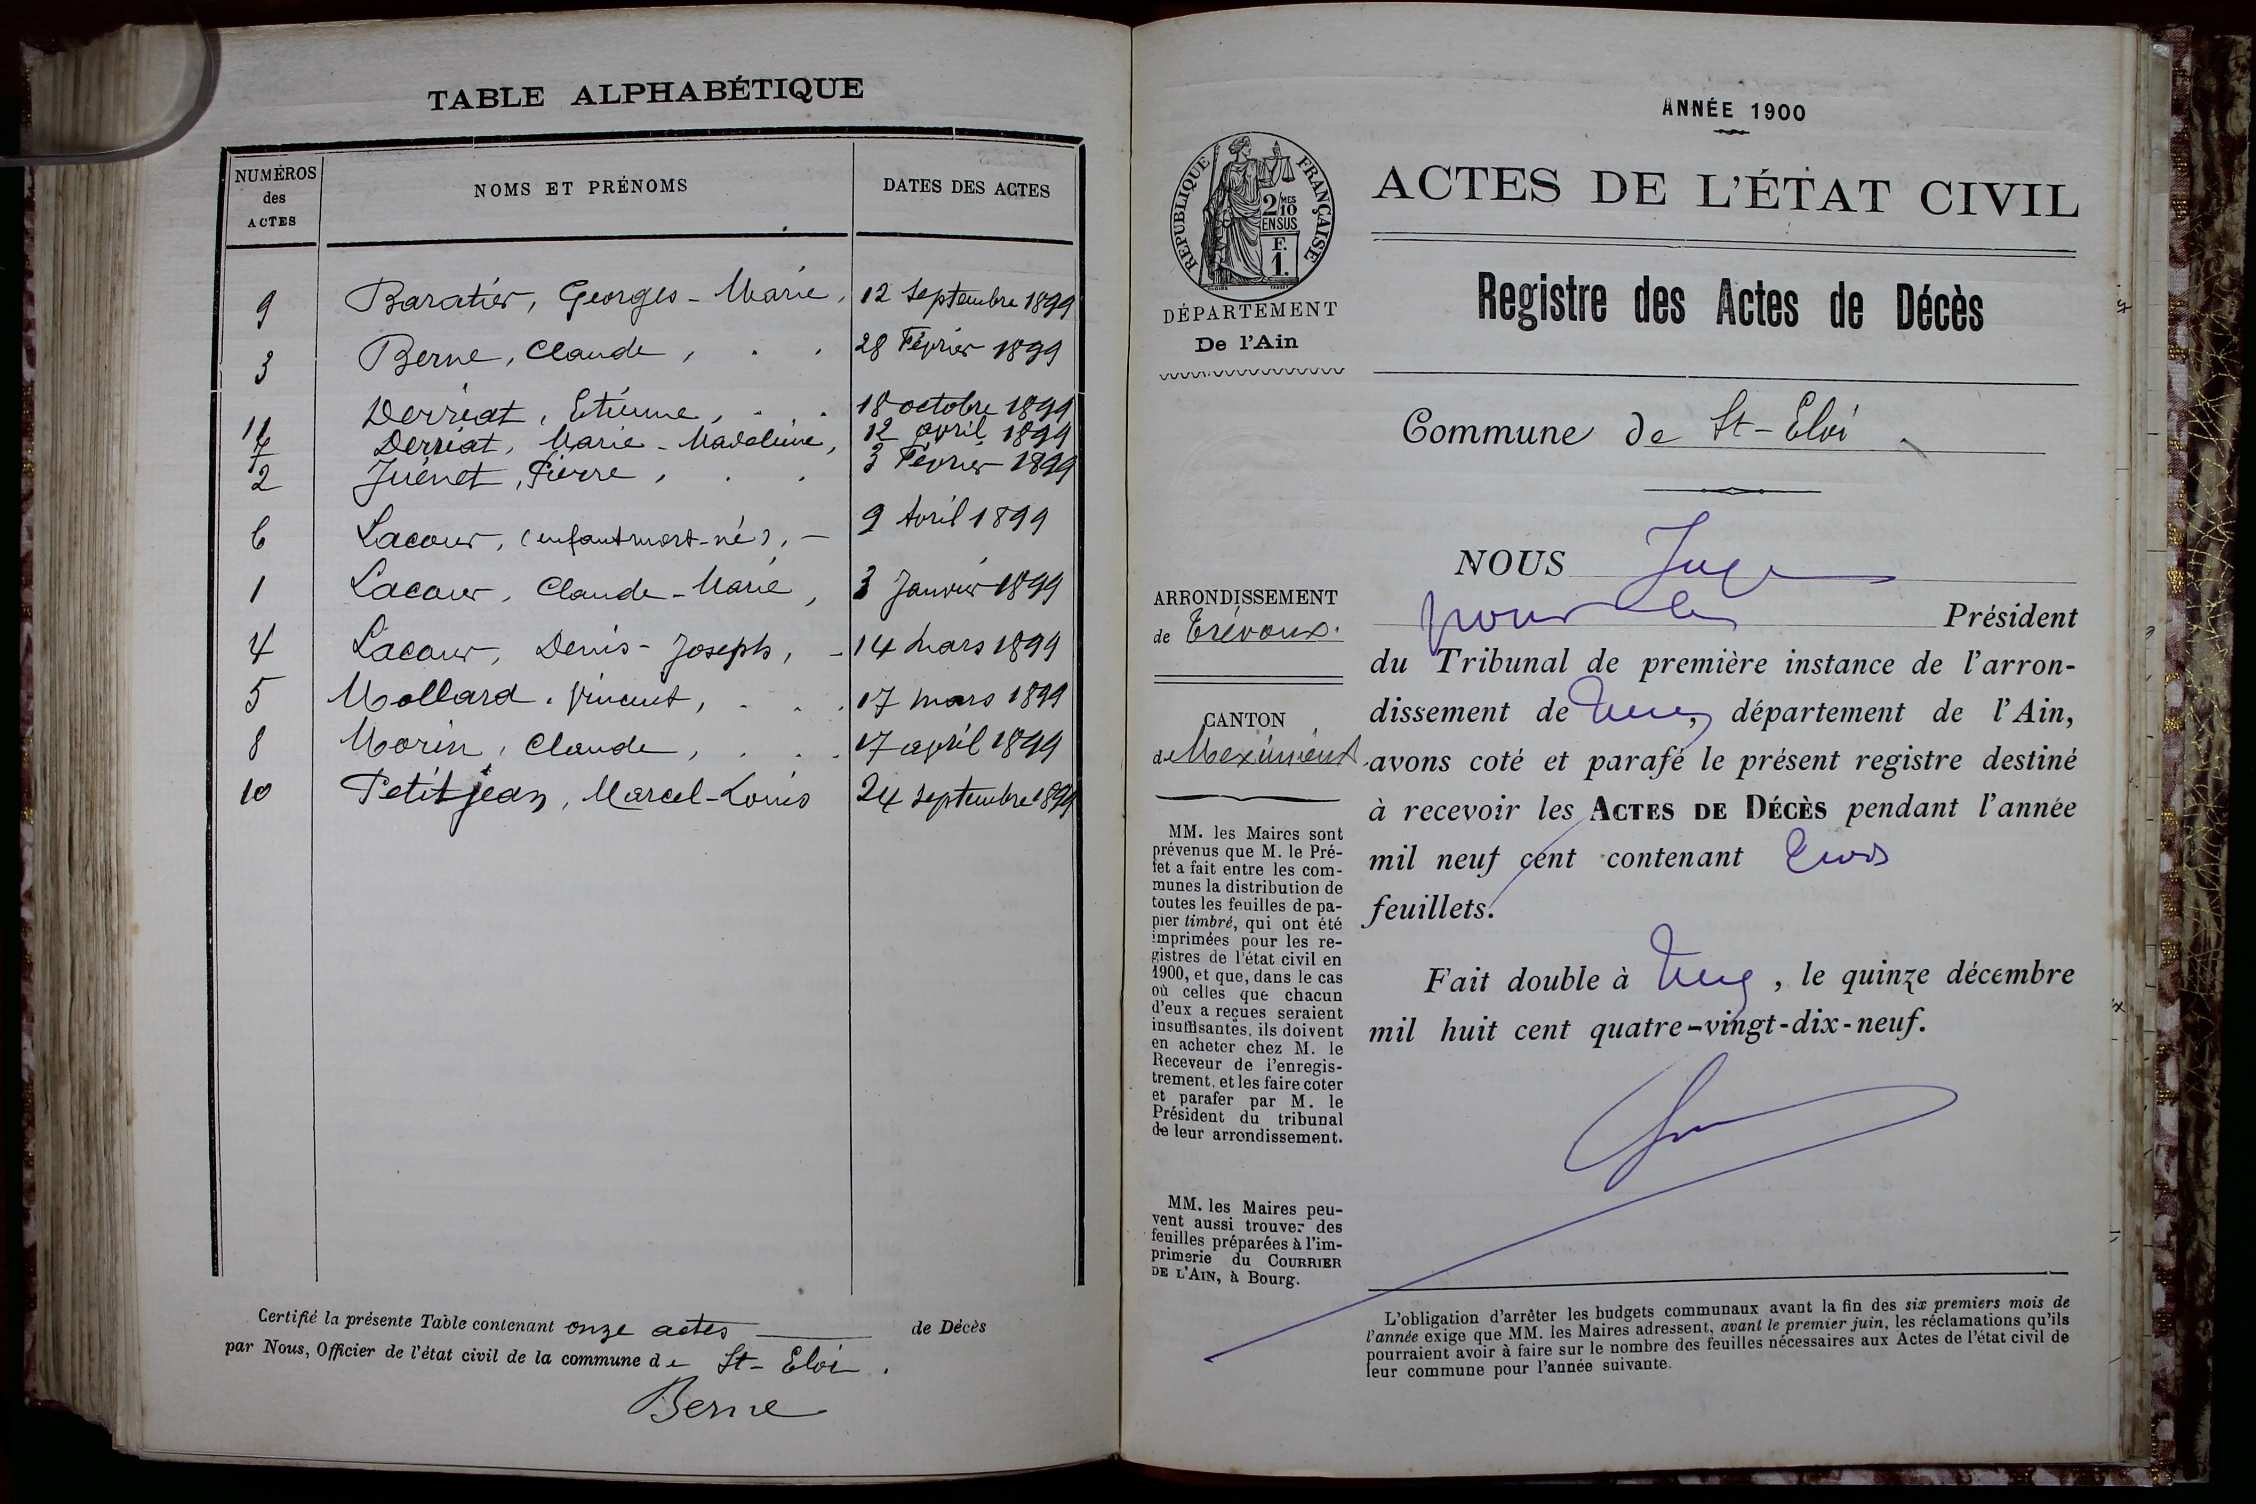 TABLE ALPHABÉTIQUE
NUMÉROS
des
ACTES
NOMS ET PRÉNOMS
DATES DES ACTES
9 Baratier, Georges-Marie, 12 septembre 1899
3 Berne, Claude, . . 28 Février 1899
11 Derriat, Etienne, . . 18 octobre 1899
7 Derriat, Marie-Madeleine, 12 avril 1899
2 Juénet, Pierre, . . 3 Février 1899
6 Lacour, (enfant mort-né), — 9 Avril 1899
1 Lacour, Claude-Marie, 3 Janvier 1899
4 Lacour, Denis-Joseph, - 14 mars 1899
5 Mollard, Vincent, . . . 17 mars 1899
8 Morin, Claude, . . . 17 avril 1899
10 Petitjean, Marcel-Louis 24 septembre 1899
Certifié la présente Table contenant onze actes de Décès
par Nous, Officier de l'état civil de la commune de St-Eloi.
Berne
ANNÉE 1900
RÉPUBLIQUE FRANÇAISE
2/10 MES
EN SUS
F.
1.
DÉPARTEMENT
De l'Ain
ACTES DE L'ÉTAT CIVIL
Registre des Actes de Décès
Commune de St-Eloi
ARRONDISSEMENT
de Trévoux.
CANTON
de Meximieux
MM. les Maires sont
prévenus que M. le Pré-
fet a fait entre les com-
munes la distribution de
toutes les feuilles de pa-
pier timbré, qui ont été
imprimées pour les re-
gistres de l'état civil en
1900, et que, dans le cas
où celles que chacun
d'eux a reçues seraient
insuffisantes, ils doivent
en acheter chez M. le
Receveur de l'enregis-
trement, et les faire coter
et parafer par M. le
Président du tribunal
de leur arrondissement.
MM. les Maires peu-
vent aussi trouver des
feuilles préparées à l'im-
primerie du COURRIER
DE L'AIN, à Bourg.
NOUS Juge
pour le Président
du Tribunal de première instance de l'arron-
dissement de , département de l'Ain,
avons coté et parafé le présent registre destiné
à recevoir les ACTES DE DÉCÈS pendant l'année
mil neuf cent contenant trois
feuillets.
Fait double à , le quinze décembre
mil huit cent quatre-vingt-dix-neuf.
L'obligation d'arrêter les budgets communaux avant la fin des six premiers mois de
l'année exige que MM. les Maires adressent, avant le premier juin, les réclamations qu'ils
pourraient avoir à faire sur le nombre des feuilles nécessaires aux Actes de l'état civil de
leur commune pour l'année suivante.